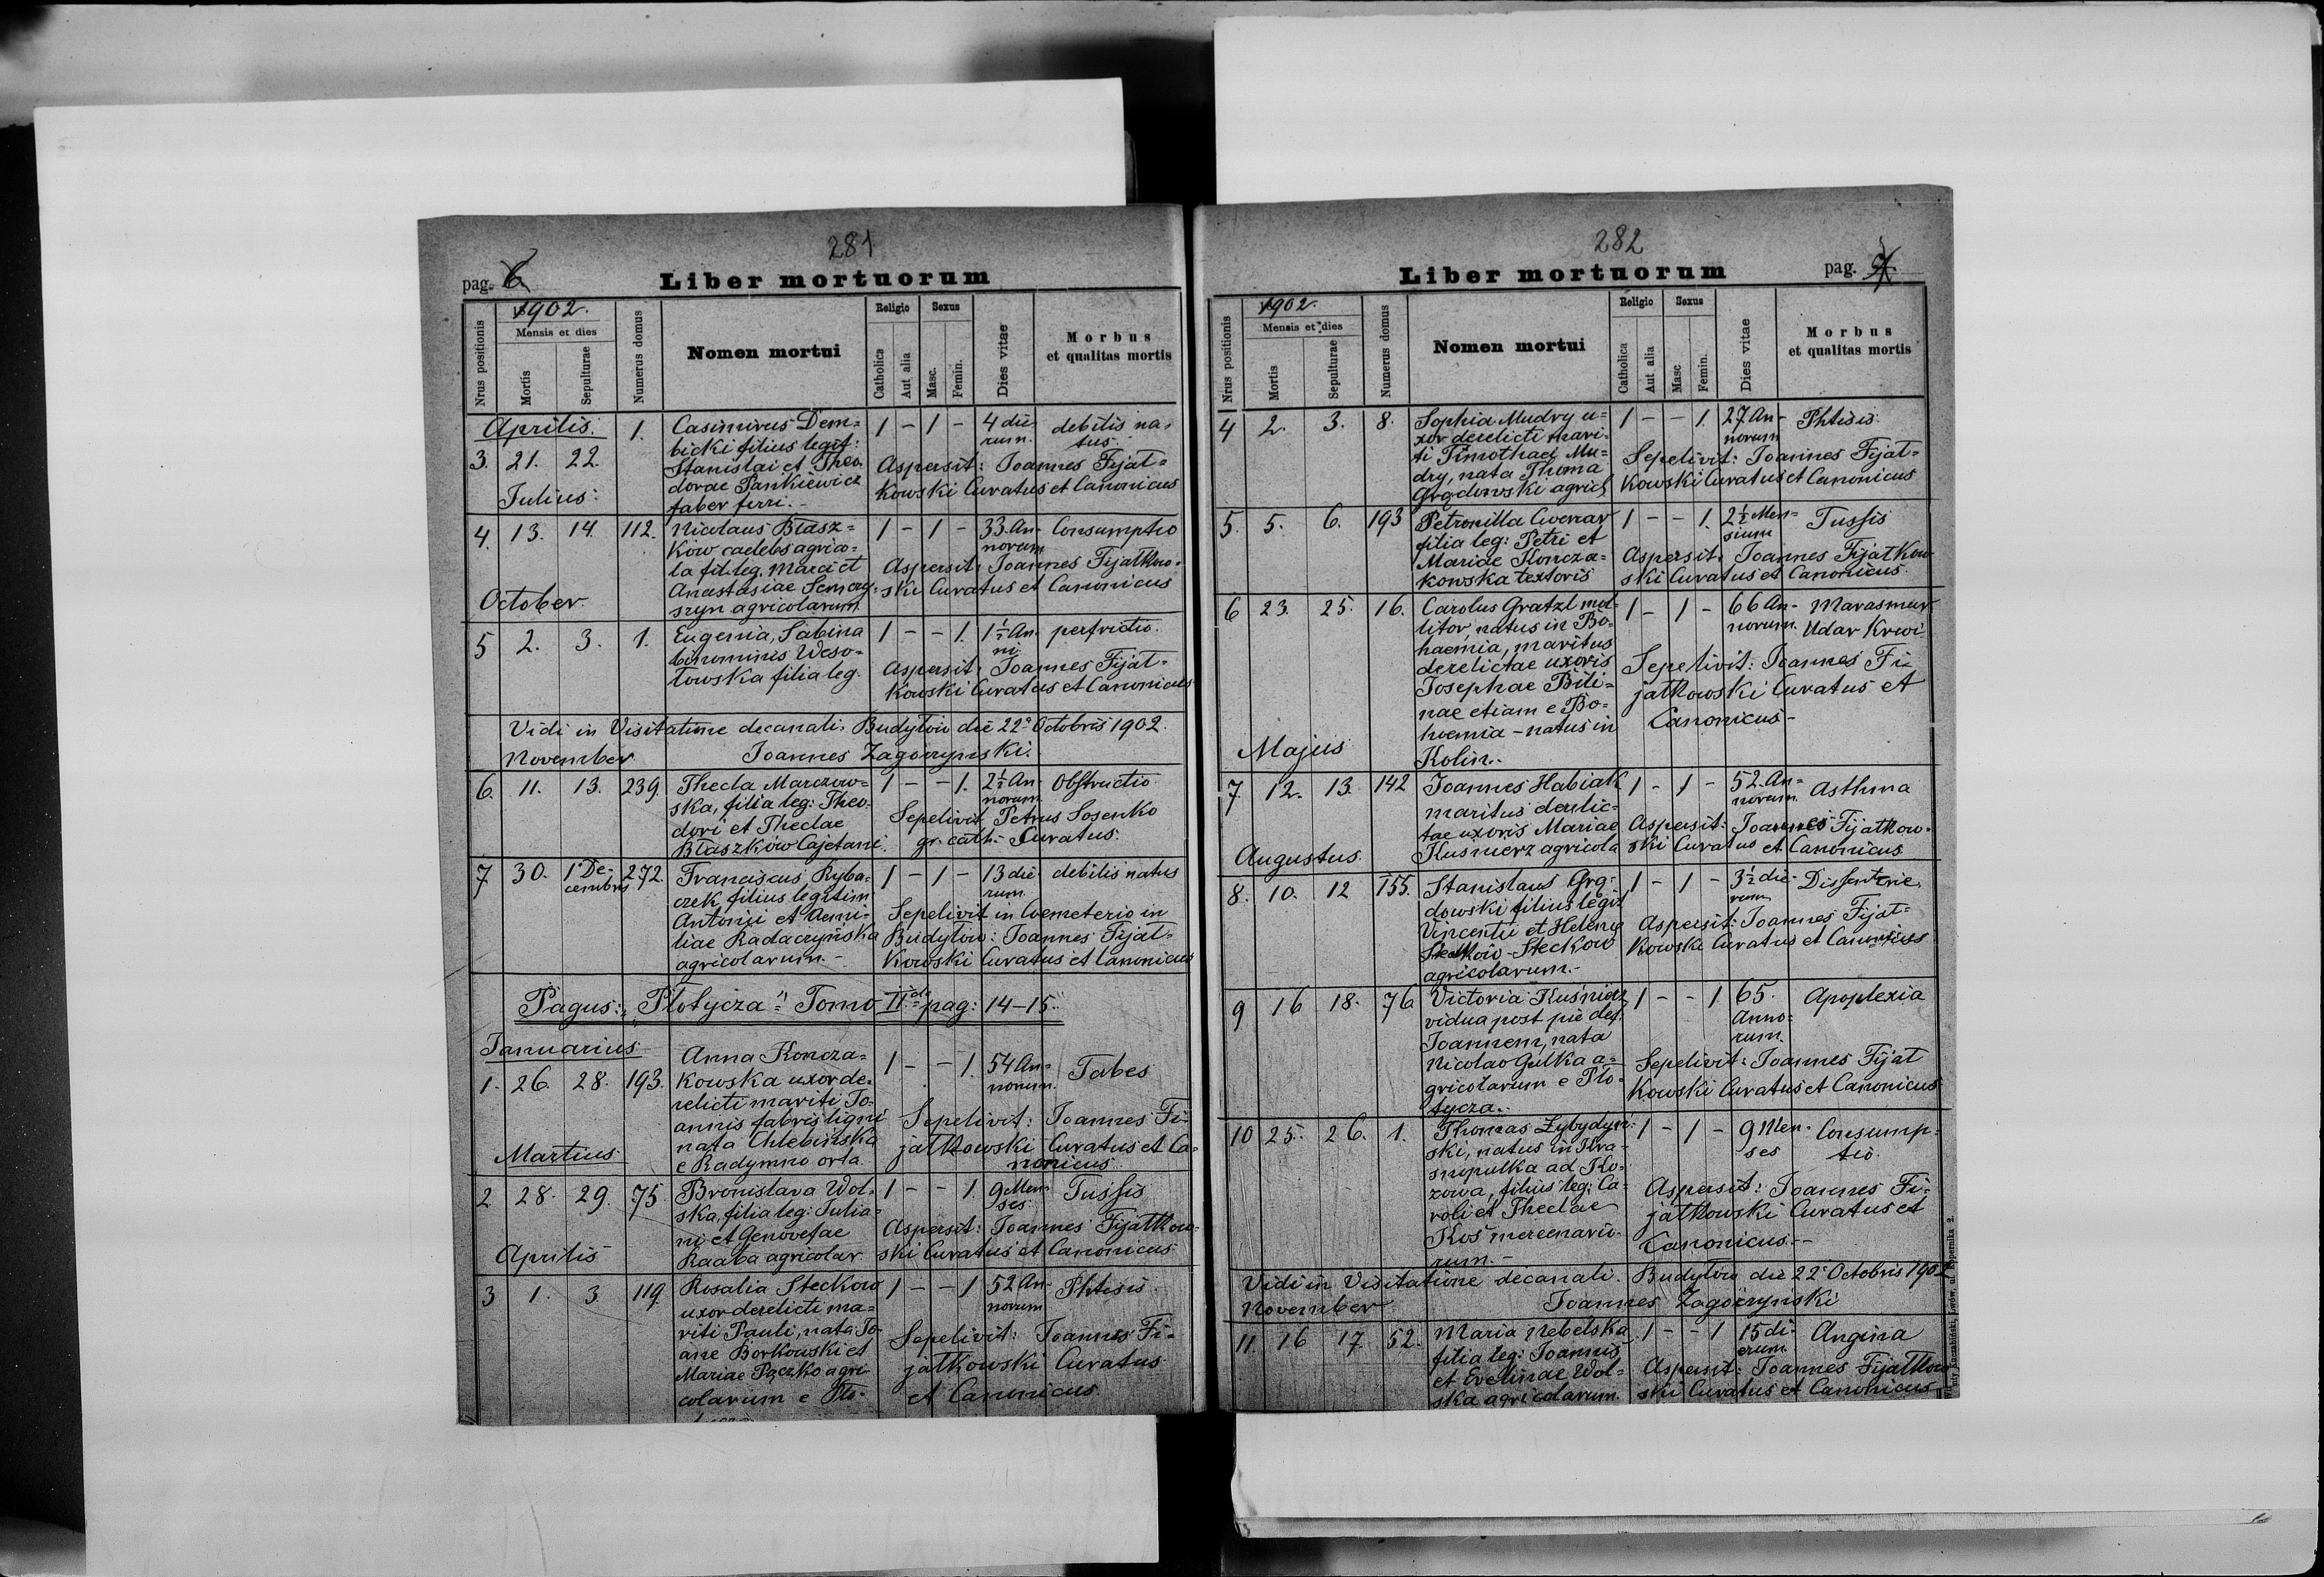 281
pag. 6
Liber mortuorum
Nrus positionis
1902.
Mensis et dies
Mortis
Sepulturae
Numerus domus
Nomen mortui
Religio
Catholica
Aut alia
Sexus
Masc.
Femin.
Dies vitae
Morbus
et qualitas mortis
Aprilis.
3. 21. 22. 1.
Casimirus Dem=
bicki filius legit:
Stanislai et Theo
dorae Pankiewicz
faber ferri.-
1 - 1 -
4 die
rum.
debilis na,
tus.
Aspersit: Joannes Fijał=
kowski Curatus et Canonicus
Julius:
4. 13. 14. 112.
Nicolaus Błasz=
ków caelebs agrico=
la fil. leg. Marci et
Anastasiae Semczy=
szyn agricolarum.
1 - 1 -
33. An-
norum
Consumptio
Aspersit: Joannes Fijałkow=
ski Curatus et Canonicus
October.
5 2. 3. 1.
Eugenia, Sabina
binominis Weso=
łowska filia leg.
1 - - 1.
1½ An.
ni.
perfrictio.
Aspersit: Joannes Fijał=
kowski Curatus et Canonicus
Vidi in Visitatione decanali. Budyłów die 22ª Octobris 1902.
November
Joannes Zagórzynski.
6. 11. 13. 239
Thecla Marczow=
ska, filia leg: Theo.
dori et Theclae
Błaszków Cajetani.
1 - - 1.
2½ An
norum.
Obstructio
Sepelivit Petrus Sosenko
gr. cath. Curatus.
7 30. 1 De-
cembris 272.
Franciscus Ryba=
czek filius legitim
Antonii et Aemi=
liae Radaczyńska
agricolarum.-
1 - 1 -
13 die
rum.
debilis natus
Sepelivit in Coemeterio in
Budyłów: Joannes Fijał=
kowski Curatus et Canonicus
Pagus: "Płotycza" Tomo II pag: 14-15.
Januarius
1. 26. 28. 193.
Anna Koncza=
kowska uxor de=
relicti mariti Jo=
annis fabris ligni
nata Chlebińska
e Radymno orta.
1 - - 1.
54 An=
norum.
Tabes
Sepelivit: Joannes Fi=
jałkowski Curatus et Ca=
nonicus.
Martius
2 28. 29. 75.
Bronislava Wol=
ska, filia leg: Julia=
ni et Genovefae
Raaba agricolar
1 - - 1.
9 Men
ses.
Tussis
Aspersit: Joannes Fijałkow=
ski Curatus et Canonicus
Aprilis
3 1. 3. 119.
Rosalia Steckow
uxor derelicti ma=
riti Pauli, nata Jo=
ane Borkowski et
Mariae Pączko agri=
colarum e Pło=
1 - - 1
52 An-
norum
Phtisis.
Sepelivit: Joannes Fi=
jałkowski Curatus
et Canonicus.
282
Liber mortuorum
pag.
Nrus positionis
1902.
Mensis et dies
Mortis
Sepulturae
Numerus domus
Nomen mortui
Religio
Catholica
Aut alia
Sexus
Masc
Femin.
Dies vitae
Morbus
et qualitas mortis
4 2. 3. 8.
Sophia Mudry u=
xor derelicti mari=
ti Timothaei Mu=
dry, nata Thoma
Grądowski agricl
1 - - 1.
27 An-
norum
Phtisis.
Sepelivit: Joannes Fijał=
kowski Curatus et Canonicus
5. 5. 6. 193
Petronilla Cwenar
filia leg: Petri et
Mariae Koncza=
kowska textoris
1 - - 1.
2½ Men=
sium
Tussis
Aspersit: Joannes Fijałkow
ski Curatus et Canonicus.
6 23. 25. 16.
Carolus Gratzl mol=
litor, natus in Bo=
haemia, maritus
derelictae uxoris
Josephae Bili=
nae etiam e Bo=
hoemia - natus in
Kolin.-
1 - 1 -
66 An-
norum.
Marasmus
Udar Krwi
Sepelivit: Joannes Fi=
jałkowski Curatus et
Canonicus-
Majus
7. 12. 13. 142
Joannes Habiak
maritus derelic=
tae uxoris Mariae
Kusnierz agricola
1 - 1 -
52. An=
norum.
Asthma
Aspersit: Joannes Fijałkow=
ski Curatus et Canonicus
Augustus.
8. 10. 12 155.
Stanislaus Grą=
dowski filius legit
Vincentii et Helenae
Steckow
agricolarum.-
1 - 1 -
3½ die-
rum
Aspersit: Joannes Fijał=
kowski Curatus et Canonicus
9 16 18. 76
Victoria Kuśnierz
vidua post pie def.
Joannem, nata
Nicolao Gulka a=
gricolarum e Pło=
tycza.-
1 - - 1
65.
Anno=
rum.
Apoplexia
Sepelivit: Joannes Fijał
kowski Curatus et Canonicus
10 25. 26. 1.
Thomas Zybydyń=
ski, natus in Kra=
snopulka ad Ko=
zowa, filius leg: Ca=
roli et Theclae
Koś mercenario=
rum.-
1 - 1 -
9 Men-
ses
Consump=
tio.
Aspersit: Joannes Fi=
jałkowski Curatus et
Canonicus.-
Vidi in Visitatione decanali. Budyłów die 22ª Octobris 1902
November
Joannes Zagórzynski
11. 16 17. 52.
Maria Nebelska
filia leg: Joannis
et Evelinae Wol=
ska agricolarum.
1 - - 1
15 di-
erum.
Angina
Aspersit: Joannes Fijałkow
ski Curatus et Canonicus